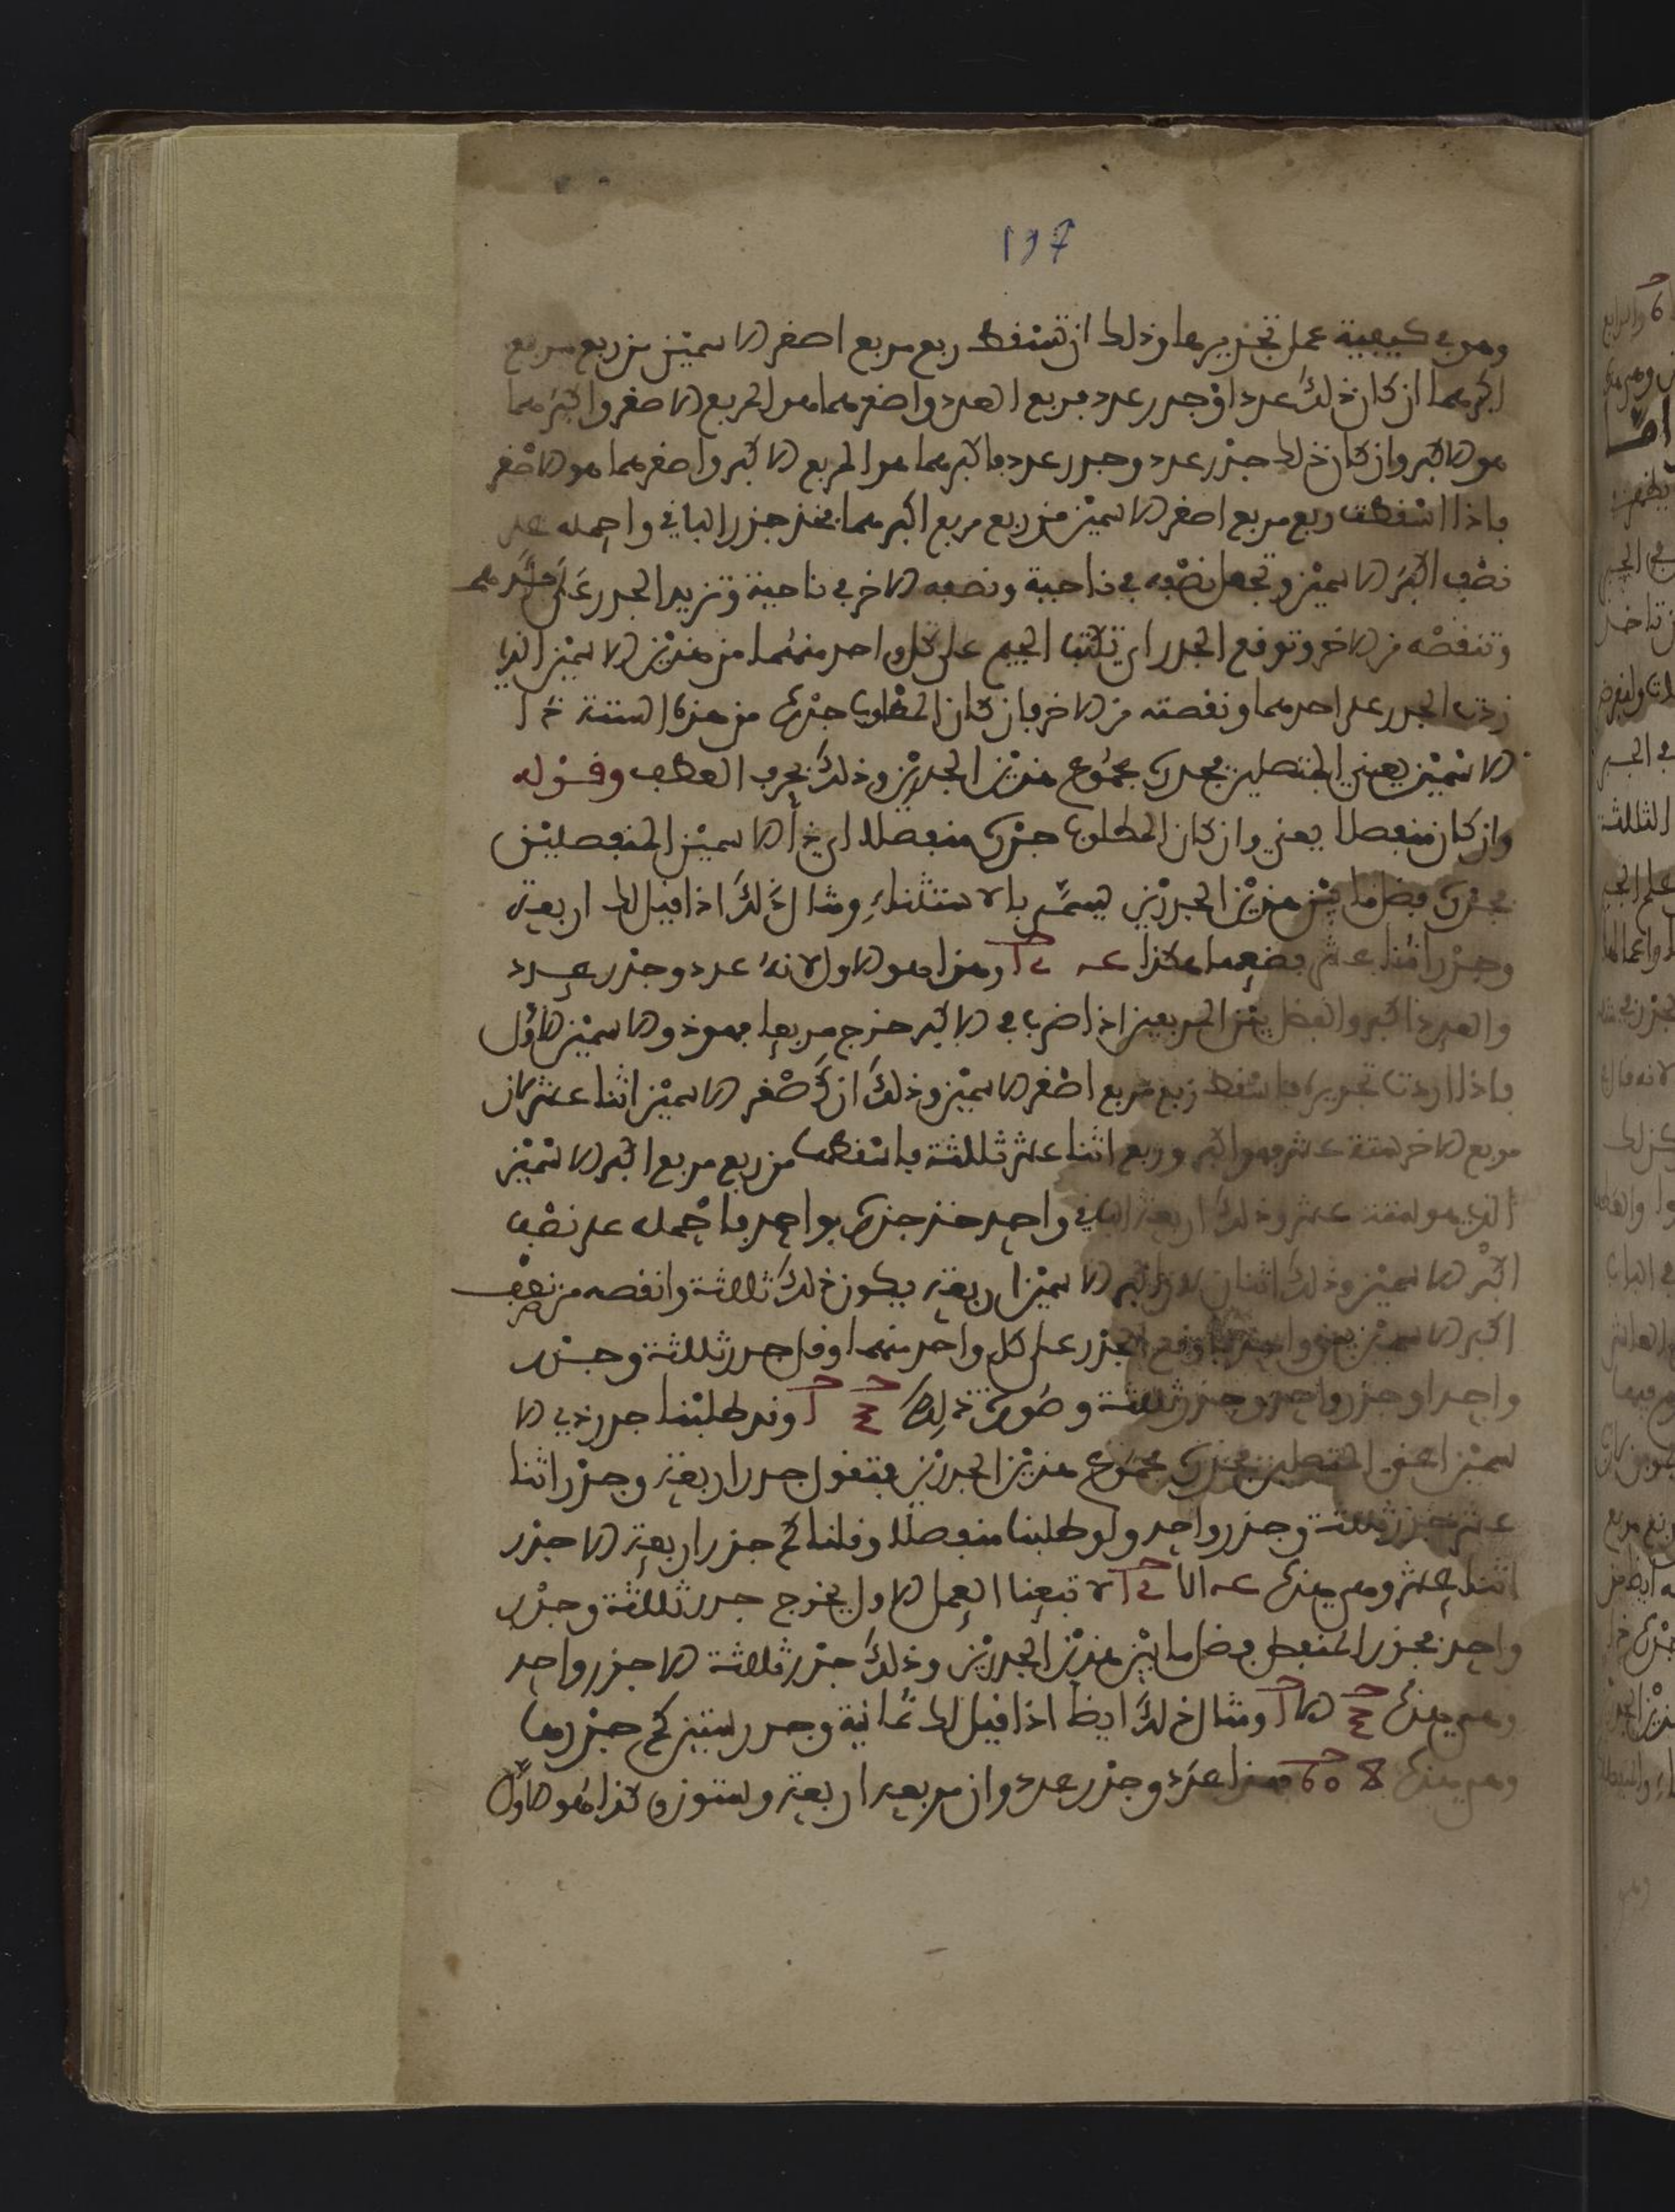 197
وهو في كيفية عمل تجذيرها وذلك ان تسقط ربع مربع اصغر الاسمين من ربع مربع
اكبرهما ان كان ذلك عددا وجذر عدد فمربع العدد واصغرهما هو المربع الاصغر واكبرهما
هو الاكبر وان كان ذلك جذر عدد وجذر عدد فاكبرهما هو المربع الاكبر واصغرهما هو الاصغر
فاذا اسقطت ربع مربع اصغر الاسمين من ربع مربع اكبرهما فخذ جذر الباقي واحمله على
نصف اكبر الاسمين وتجعل نصفه في ناحية ونصفه الاخر في ناحية وتزيد الجذر على
وتنقصه من الاخر وتوقع الجذر اي تكتب الجيم على كل واحد منهما من هذين الاسمين الذي
زدت الجذر على احدهما ونقصته من الاخر فان كان المطلوب جذره من هذه الستة ذا
الاسمين يعني المتصلين فجذره مجموع هذين الجذرين وذلك بحرف العطف وقوله
وان كان منفصلا يعني وان كان المطلوب جذره منفصلا اي ذا الاسمين المنفصلين
فجذره فضل ما بين هذين الجذرين يسمى بالاستثناء ومثال ذلك اذا قيل لك اربعة
وجذر اثنا عشر فضعهما هكذا وهذا هو الاول لانه عدد وجذر عدد
والعدد اكبر والفضل بين المربعين اذا ضرب في الاكبر خرج مربعا فهو ذو الاسمين الاول
فاذا اردت تجذيره فاسقط ربع مربع اصغر الاسمين وذلك ان اصغر الاسمين اثنا عشر لان
مربع الاخر ستة عشر فهو اكبر وربع اثنا عشر ثلثة فاسقطها من ربع مربع اكبر الاسمين
الذي هو ستة عشر وذلك اربعة الباقي واحد خذ جذره بواحد فاحمله على نصف
اكبر الاسمين وذلك اثنان لان اكبر الاسمين اربعة يكون ذلك ثلاثة وانقصه من نصف
اكبر الاسمين يبقى واحد فاوقع الجذر على كل واحد منهما وقل جذر ثلثة وجذر
واحد او جذر واحد وجذر ثلثة وصورة ذلك وقد طلبنا جذر ذي الا
سمين اعني المتصلين فجذره مجموع هذين الجذرين فتقول جذر اربعة وجذر اثنا
عشر جذر ثلثة وجذر واحد ولو طلبنا منفصلا وقلنا كم جذر اربعة الا جذر
اثنا عشر وهي هذه لاتبعنا العمل الاول يخرج جذر ثلثة وجذر
واحد فجذر المنفصل فضل ما بين هذين الجذرين وذلك جذر ثلاثة الا جذر واحد
وهي هذه ومثال ذلك ايضا اذا قيل لك ثمانية وجذر ستين كم جذرها
وهي هذه 8 60 فهذا عدد وجذر عدد وان مربعه اربعة وستون هو الاول